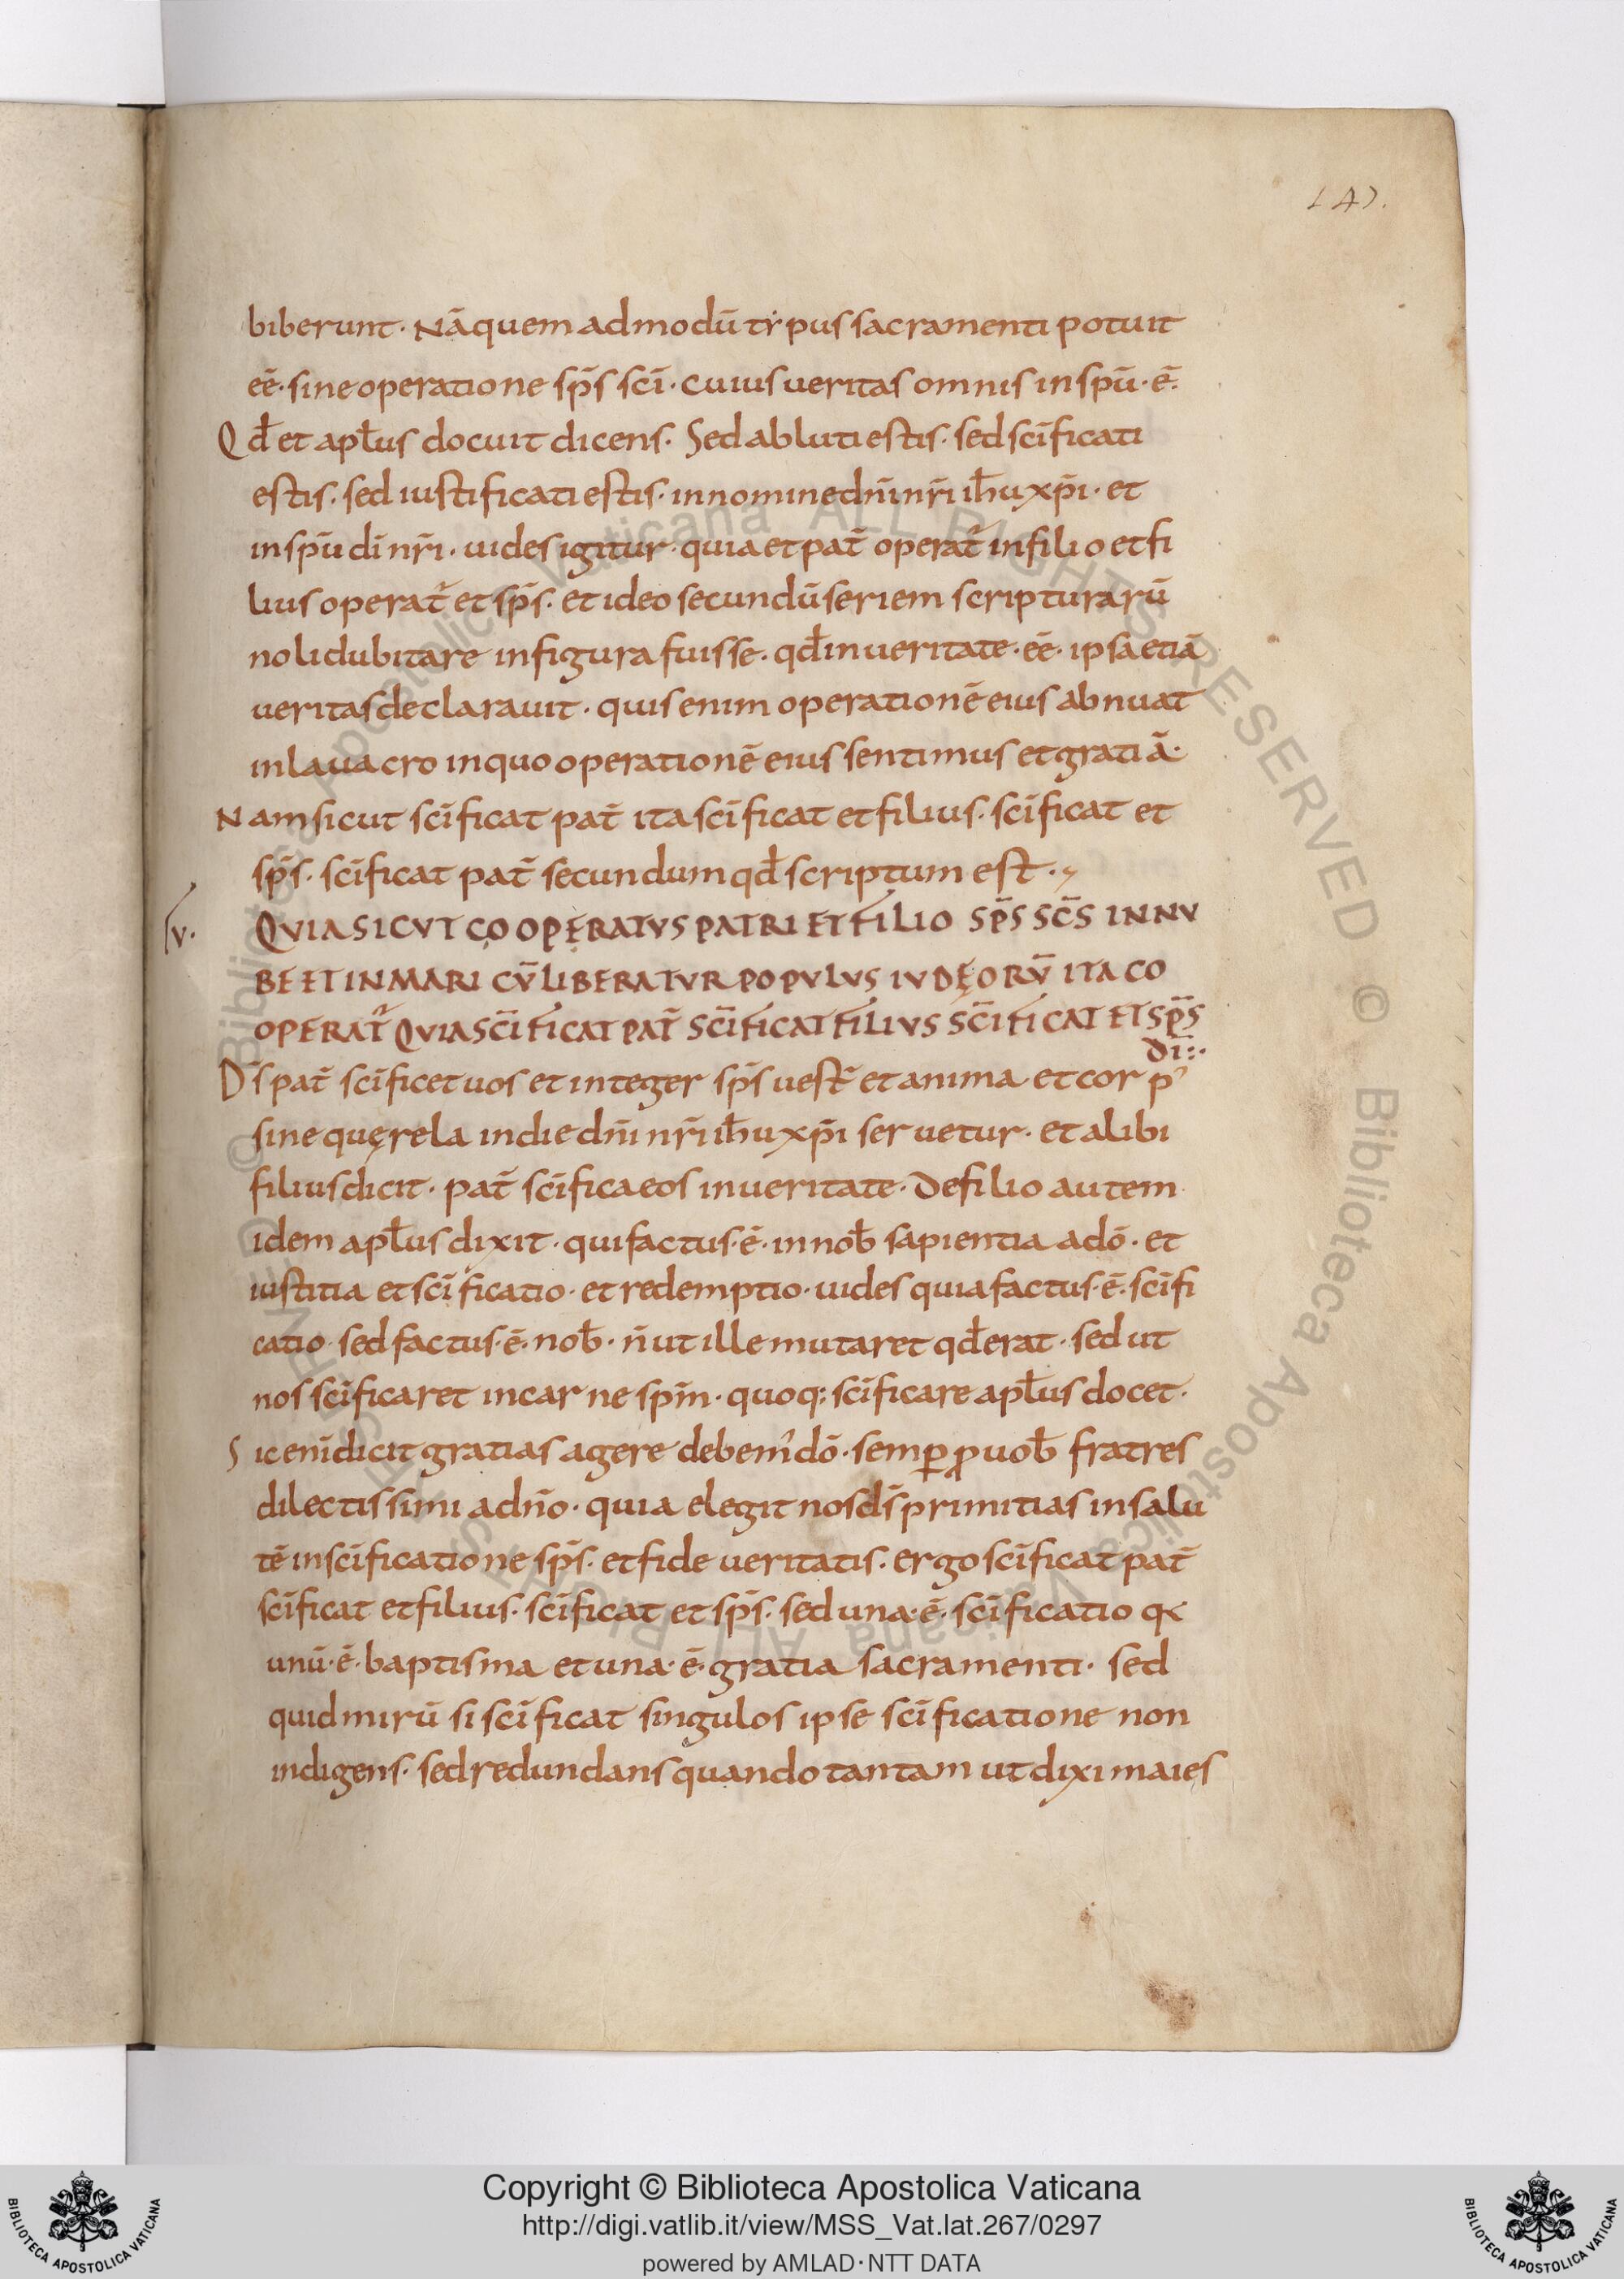 147.
biberunt · Nāquem admodū tẏpus sacramenti potuit
eē · sine operatione sp̄s sc̄i · cuius ueritas omnis in spū · ē ·
Qd̄ et apl̄us docuit dicens · Sed abluti estis · sed sc̄ificati
estis · sed iustificati estis · in nomine dn̄i nr̄i ih̄u xp̄i · et
in spū dī nr̄i · uides igitur · quia et pat̄ operat᷑ in filio et fi
lius operat᷑ et sp̄s · et ideo secundū seriem scripturarū
noli dubitare in figura fuisse · qd̄ in ueritate · eē · ipsa etiā
ueritas declarauit · quis enim operationē eius abnuat
in lauacro in quo operationē eius sentimus et gratiā ·
Nam sicut sc̄ificat pat̄ ita sc̄ificat et filius · sc̄ificat et
sp̄s · sc̄ificat pat̄ secundum qd̄ scriptum est ·
V.
QUIA SICUT COOPERATUS PATRI ET FILIO SP̄S SC̄S IN NU
BE ET IN MARI CŪ LIBERATUR POPULUS IUDĘORŪ ITA CO
OPERAT᷑ QUIA SC̄IFICAT PAT̄ SC̄IFICAT FILIUS SC̄IFICAT ET SP̄S
DĪ:·
D̄s pat̄ sc̄ificet uos et integer sp̄s uest̄ et anima et corp᾽
sine quęrela in die dn̄i nr̄i ih̄u xp̄i seruetur · et alibi
filius dicit · pat̄ sc̄ifica eos in ueritate · De filio autem
idem apl̄us dixit · qui factus · ē · in nob̄ sapientia a dō · et
iustitia et sc̄ificatio · et redemptio · uides quia factus · ē · sc̄ifi
catio · sed factus · ē · nob̄ · n̄ ut ille mutaret qd̄ erat · sed ut
nos sc̄ificaret in carne sp̄m · quoq; sc̄ificare apl̄us docet ·
Sic enī dicit gratias agere debem᾽ dō · semꝑ ꝓ uob̄ fratres
dilectissimi a dn̄o · quia elegit nos d̄s primitias in salu
tē in sc̄ificatione sp̄s · et fide ueritatis · ergo sc̄ificat pat̄
sc̄ificat et filius · sc̄ificat et sp̄s · sed una · ē · sc̄ificatio q
unū · ē · baptisma et una · ē · gratia sacramenti · sed
quid mirū si sc̄ificat singulos ipse sc̄ificatione non
indigens · sed redundans quando tantam ut dixi maies
Copyright © Biblioteca Apostolica Vaticana
http://digi.vatlib.it/view/MSS_Vat.lat.267/0297
powered by AMLAD · NTT DATA
BIBLIOTECA APOSTOLICA VATICANA
BIBLIOTECA APOSTOLICA VATICANA